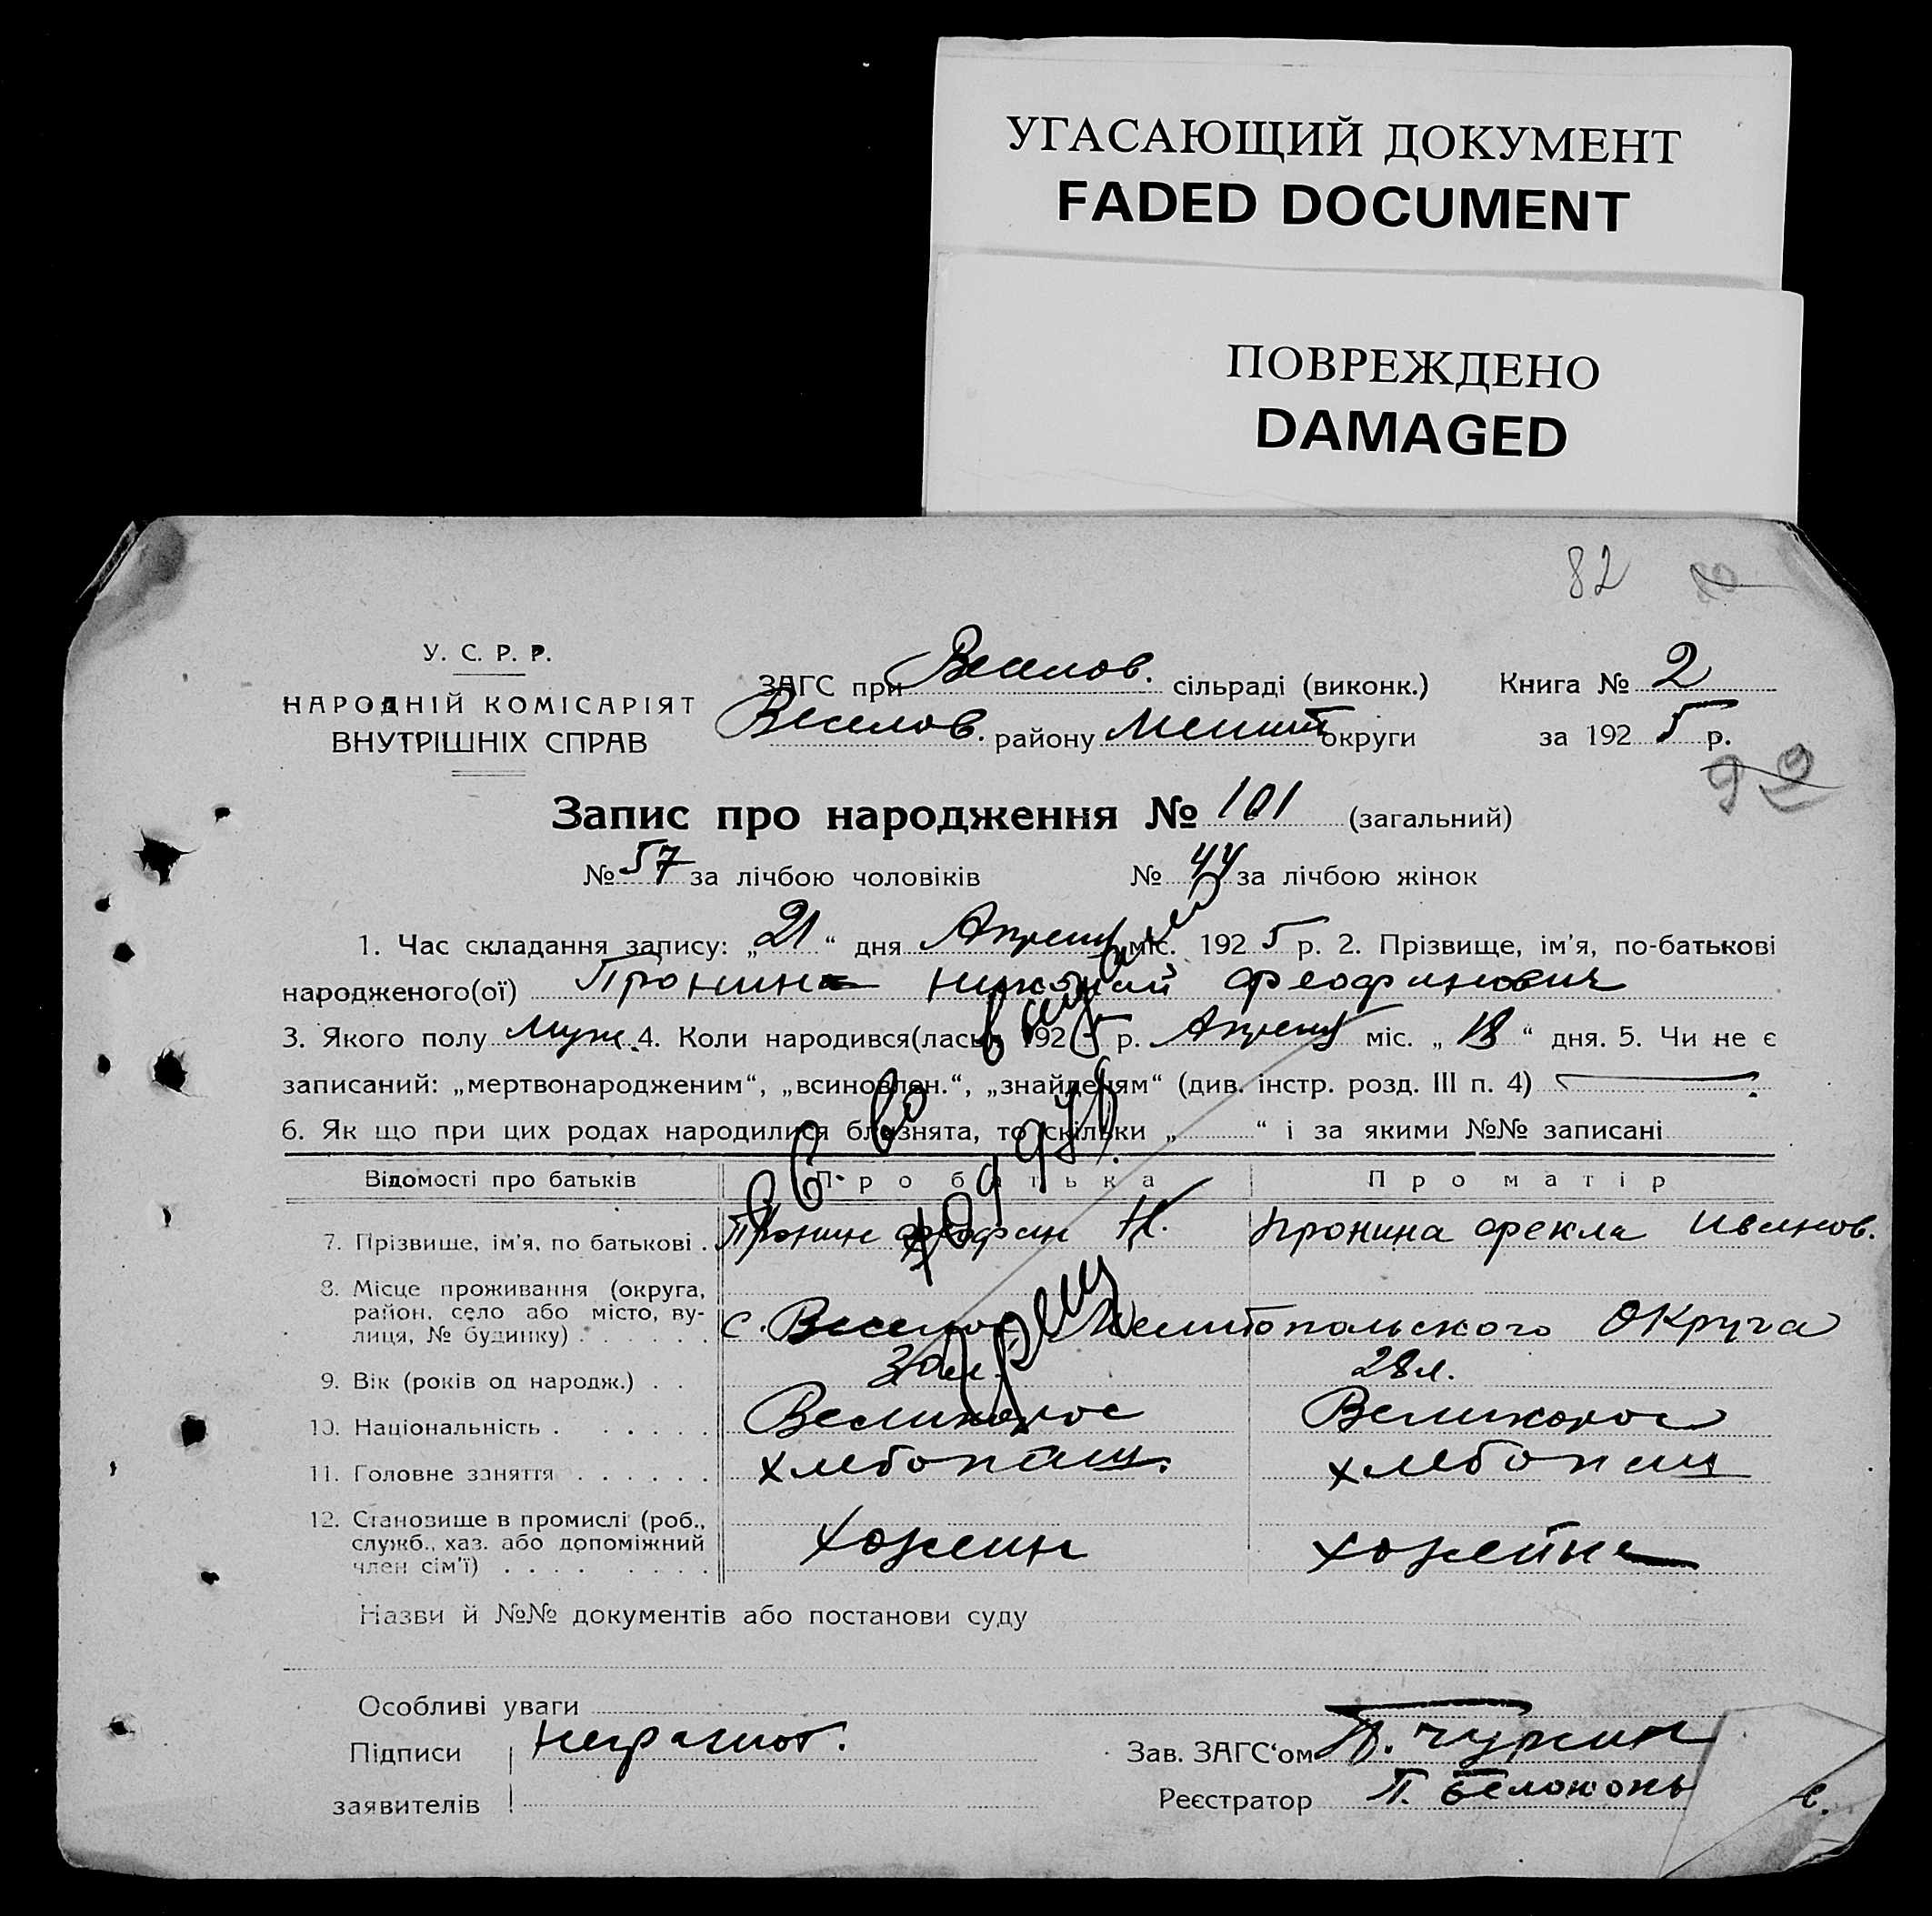 УГАСАЮЩИЙ ДОКУМЕНТ
FADED DOCUMENT
ПОВРЕЖДЕНО
DAMAGED
82
У. С. Р. Р.
НАРОДНІЙ КОМІСАРІЯТ
ВНУТРІШНІХ СПРАВ
ЗАГС при Веселов. сільраді (виконк.) Книга № 2
Веселов. району Мелит округи за 192 5 р.
92
Запис про народження № 101 (загальний)
№ 57 за лічбою чоловіків № 44 за лічбою жінок
1. Час складання запису: „ 21 “ дня Апреля міс. 192 5 р. 2. Прізвище, ім'я, по-батькові
народженого(ої) Пронин Николай Феофинович
3. Якого полу Муж. 4. Коли народився(лась) 192 5 р. Апреля міс. „ 18 “ дня. 5. Чи не є
записаний: „мертвонародженим“, „всиновлен.“, „знайденям“ (див. інстр. розд. III п. 4)
6. Як що при цих родах народилися близнята, то скільки „ “ і за якими №№ записані
Відомості про батьків Про батька Про матір
7. Прізвище, ім'я, по батькові . Пронин Феофин Н. Пронина Фекла Иванов.
8. Місце проживання (округа,
район, село або місто, ву-
лиця, № будинку) . . . . . . с. Веселое Мелитопольского Округа
9. Вік (років од народж.) . . 30 л. 28 л.
10. Національність . . . . . . Великорос Великорос
11. Головне заняття . . . . . . хлебопаш. хлебопаш
12. Становище в промислі (роб.,
служб., хаз. або допоміжний
член сім'ї) . . . . . . . . Хозяин хозяйка
Назви й №№ документів або постанови суду
Особливі уваги
Підписи неграмот. Зав. ЗАГС‘ом
заявителів Реєстратор П. Белоконь